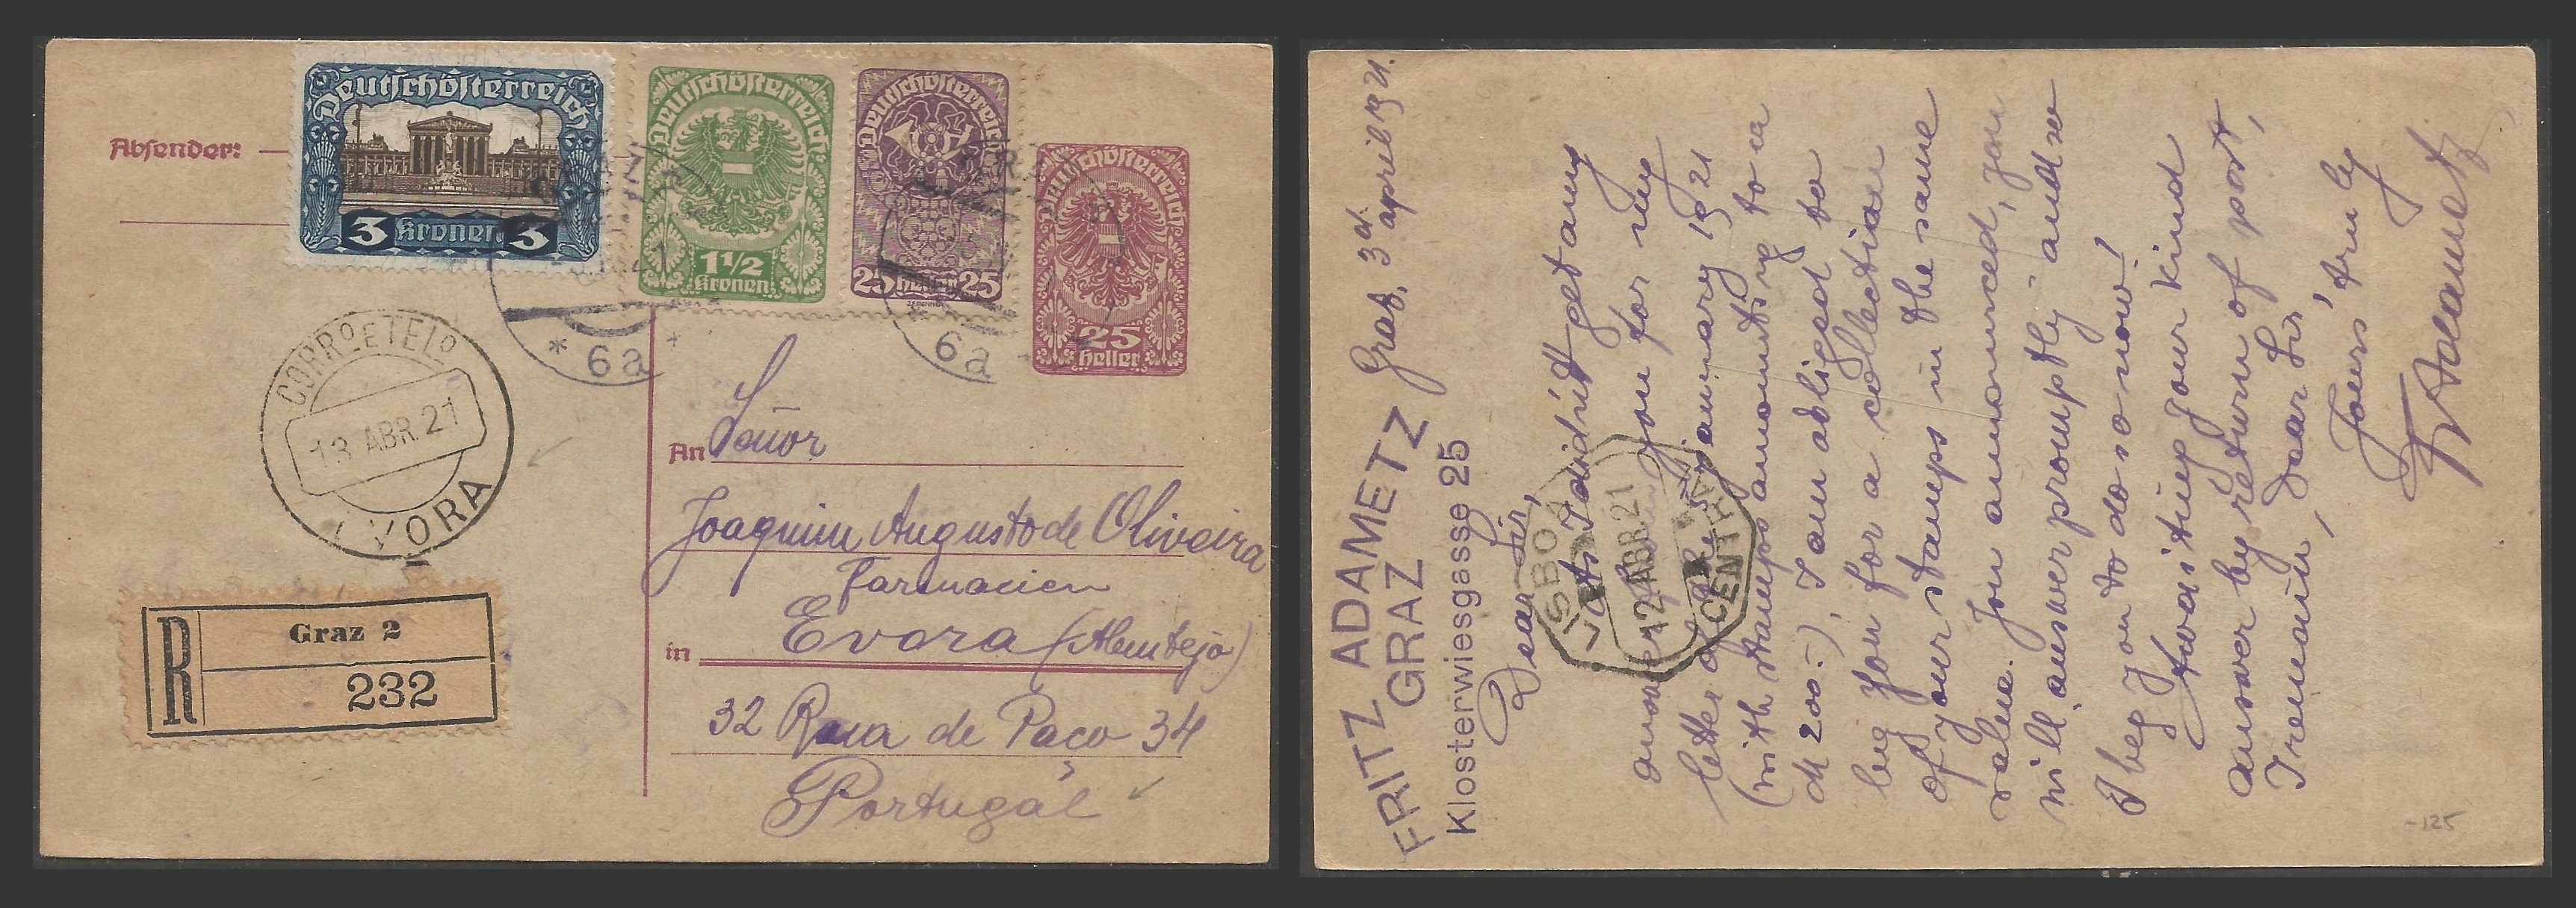 Absender:
Deutschösterreich
3 Kronen 3
Deutschösterreich
1½
Kronen
Deutschösterreich
25 Heller 25
Deutschösterreich
25
Heller
* 6a *
6a
CORRº E TELº
13 ABR. 21
EVORA
R
Graz 2
232
An Senor
Joaquim Augusto de Oliveira
Farmacien
in Evora (Alemtejo)
32 Rua de Paco 34
Portugal
FRITZ ADAMETZ
GRAZ
Klosterwiesgasse 25
Graz, 3d. april 1921.
Dear Sir,
As I didn't get any
answer from you for my
letter of the 5th january 1921
(with stamps amounting to a
M 200.-), I am obliged to
beg you for a collection
of your stamps in the same
value. You announced, you
will "answer promptly" and so
I beg you to do so now!
Awaiting your kind
answer by return of post,
I remain, Dear Sir,
Yours truly
F Adametz
LISBOA
12 ABR. 21
CENTRAL
-125